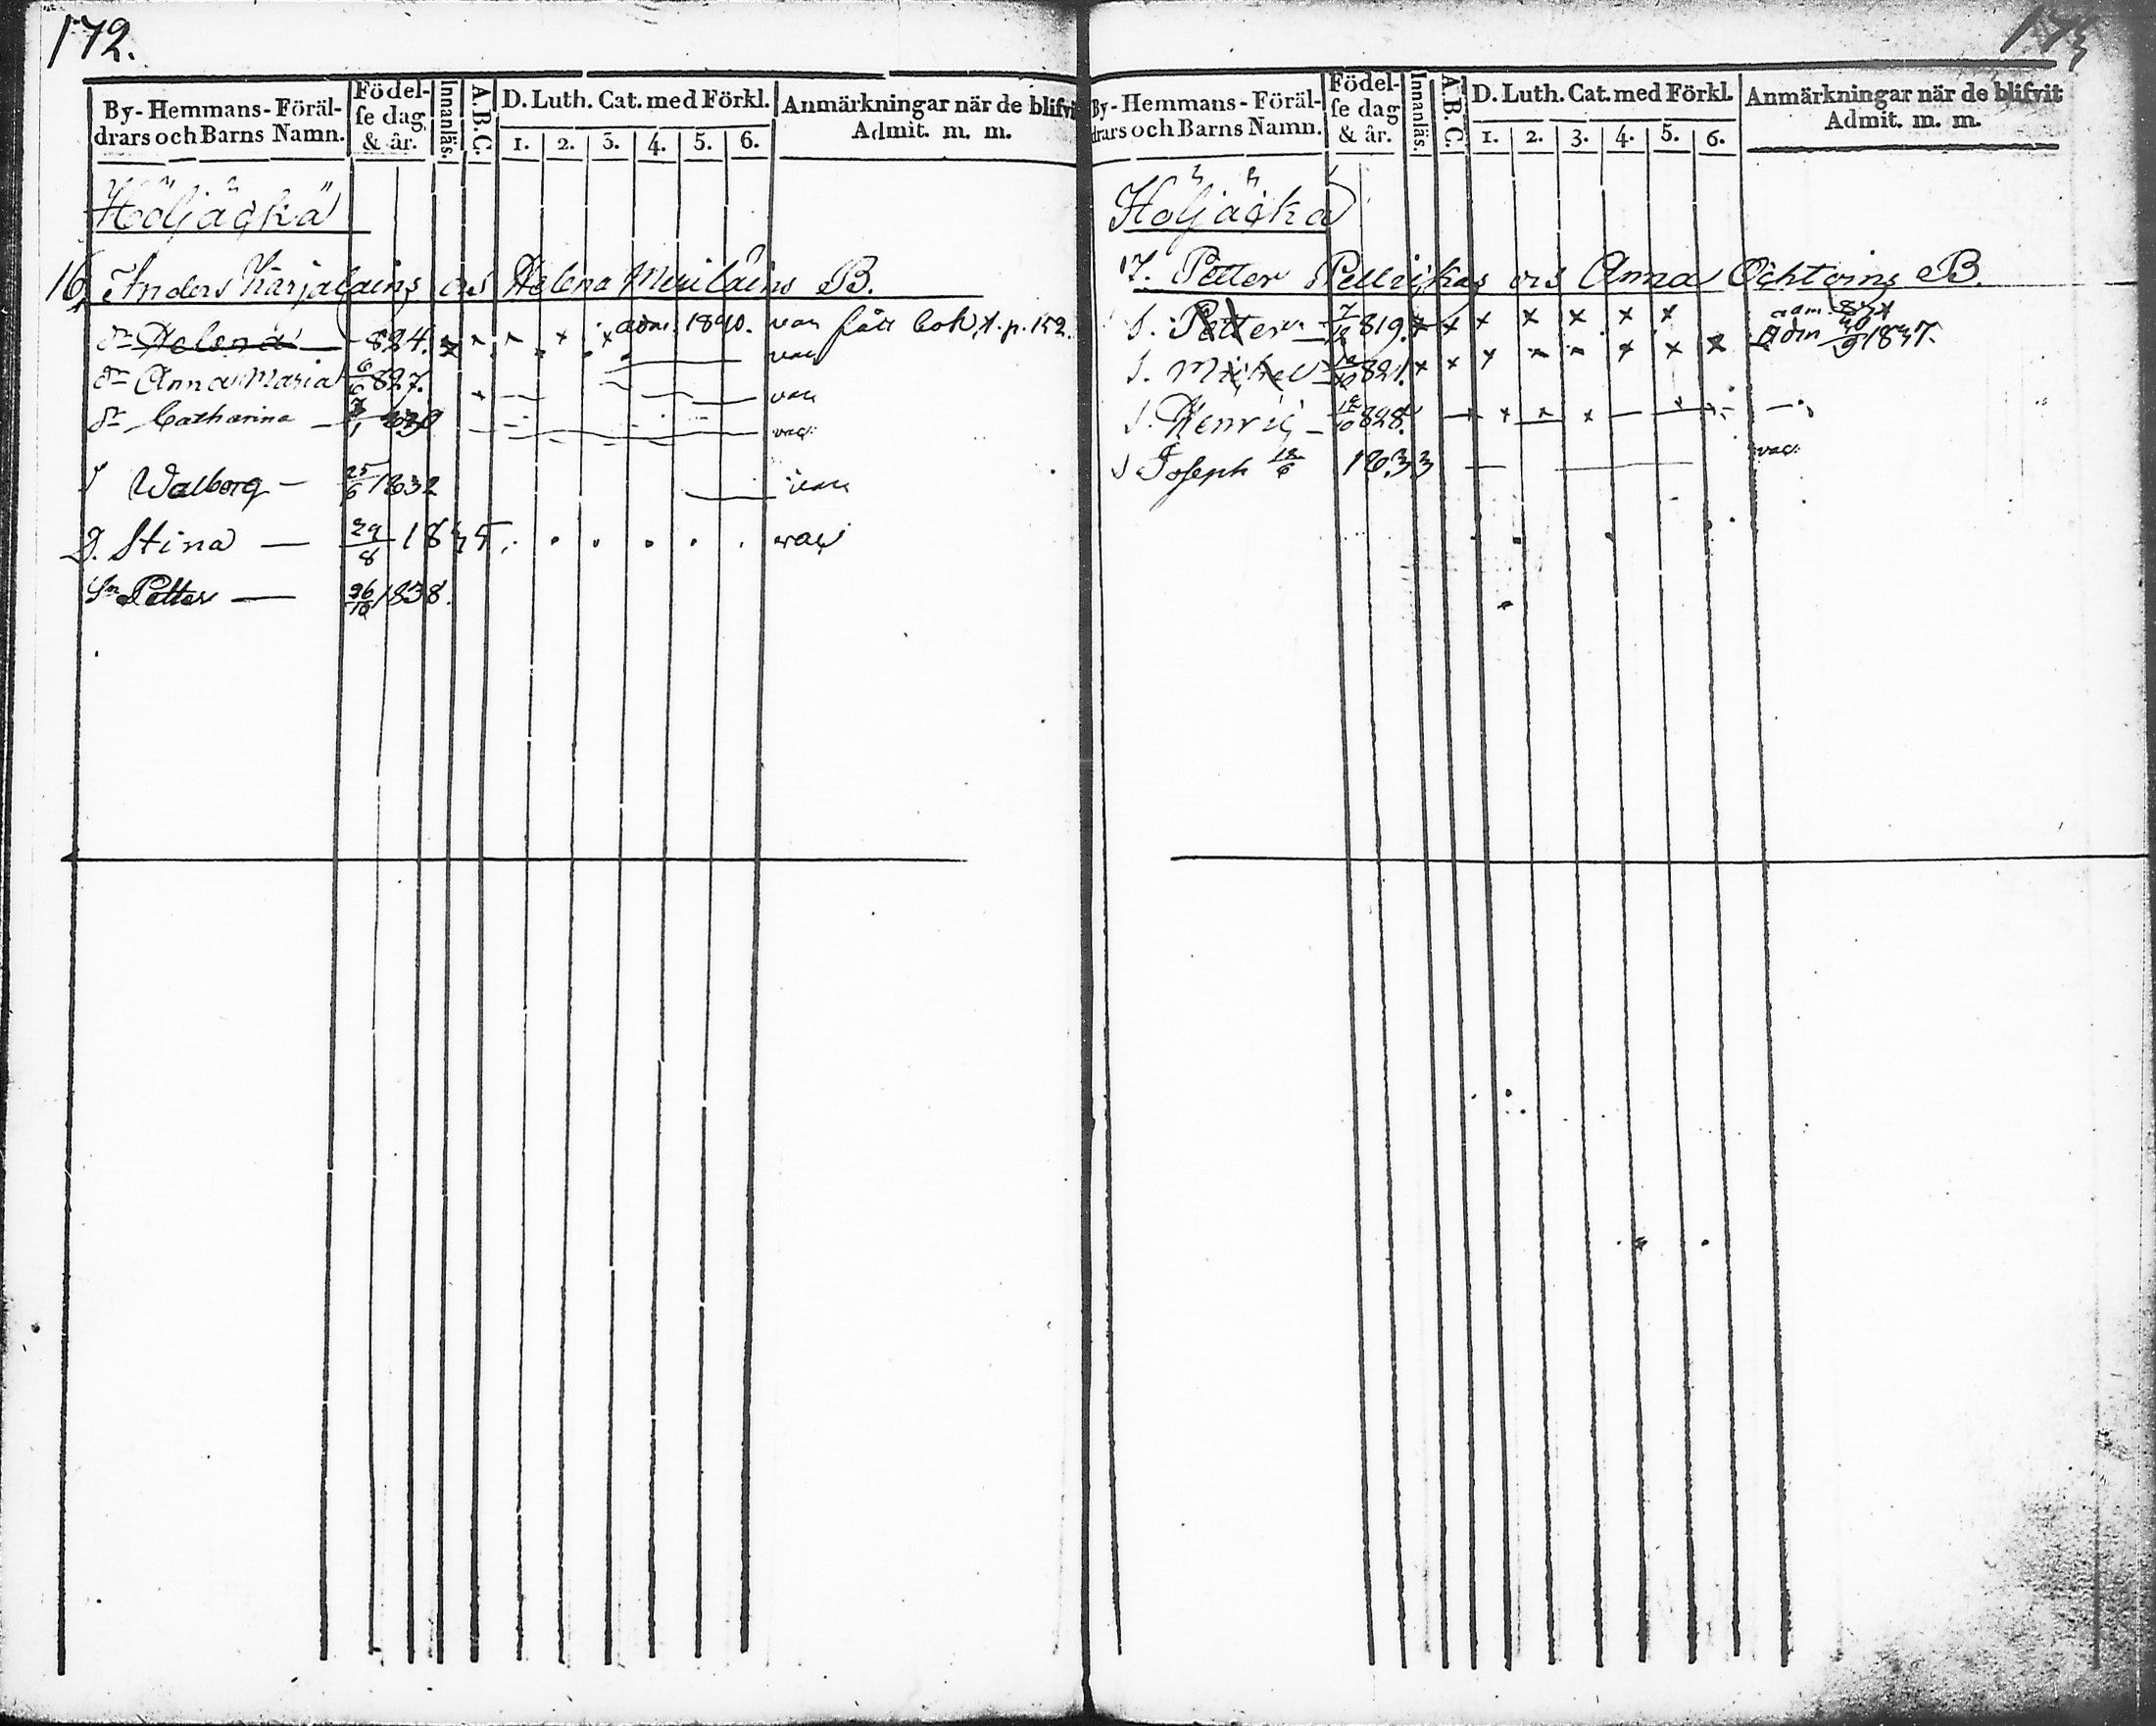 172.
By- Hemmans- Föräl- drars och Barns Namn.
Födel- se dag & år.
Innanläs.
A.B.C.
D. Luth. Cat. med Förkl.
1. 2. 3. 4. 5. 6.
Anmärkningar när de blifvit Admit. m. m.
Höljäckä
16. Anders Karjalains och Helena Meriläins B.
Dr Helena — 824. adm. 1840. vac fått bok, t. p. 152.
Dr Anna Maria 6/6 827. vac
Dr Catharina — vac
Walborg — 25/6 1832 vac
D. Stina — 29/8 1835. vac
Sn Petter — 26/10 1838.
173
By- Hemmans- Föräl- drars och Barns Namn.
Födel- se dag & år.
Innanläs.
A.B.C.
D. Luth. Cat. med Förkl.
1. 2. 3. 4. 5. 6.
Anmärkningar när de blifvit Admit. m. m.
Höljäckä
17. Petter Pellrikas och Anna Ochtoins B.
S. Petter 819. adm.
S. Michel 821. Adm 1837.
S. Henric — 828.
S Joseph 18/6 1833 vac.